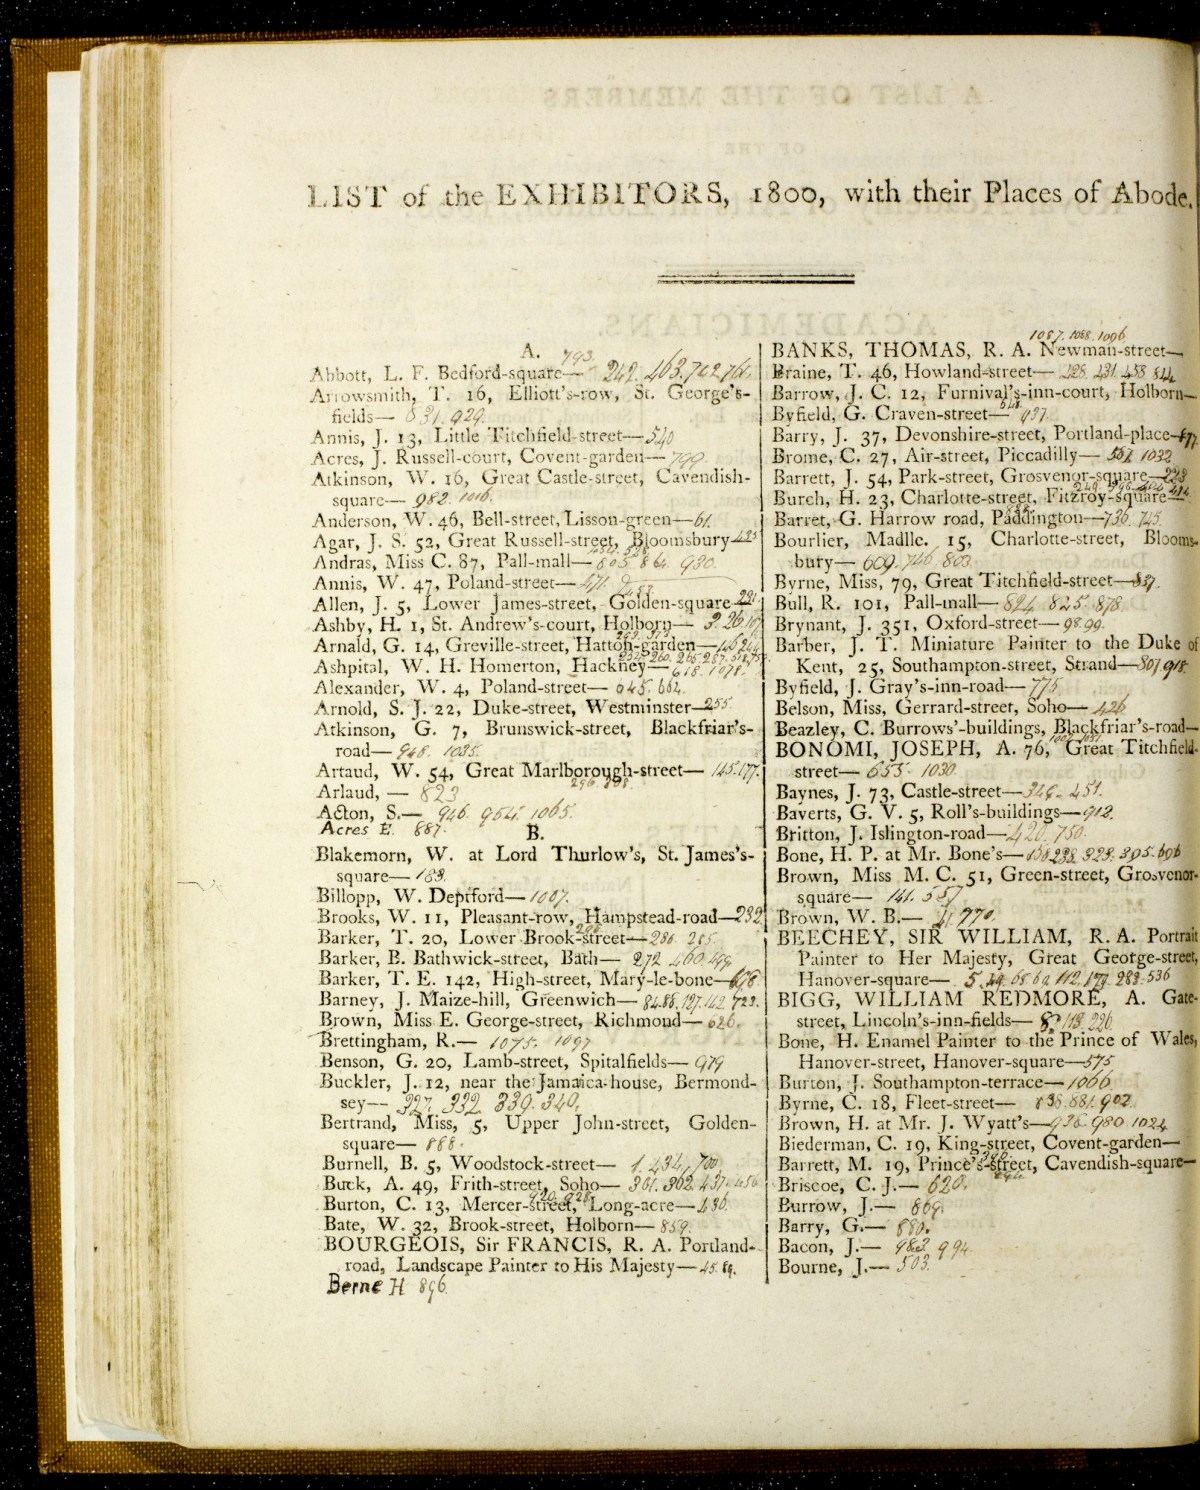 LIST of the EXHIBITORS, 1800, with their Places of Abode.
A.
793.
Abbott, L. F. Bedford-square— 242. 463. 702. 761.
Arrowsmith, T. 16, Elliott's-row, St. George's-
fields— 831. 929.
Annis, J. 13, Little Titchfield-street—540
Acres, J. Russell-court, Covent-garden—799
Atkinson, W. 16, Great Castle-street, Cavendish-
square— 982. 1016.
Anderson, W. 46, Bell-street, Lisson-green—61.
Agar, J. S. 52, Great Russell-street, Bloomsbury—
Andras, Miss C. 87, Pall-mall— 805. 864. 930.
Annis, W. 47, Poland-street—471.
Allen, J. 5, Lower James-street, Golden-square—291.
Ashby, H. 1, St. Andrew's-court, Holborn— 3. 26
Arnald, G. 14, Greville-street, Hatton-garden—
Ashpital, W. H. Homerton, Hackney— 618. 1078.
Alexander, W. 4, Poland-street— 645. 664.
Arnold, S. J. 22, Duke-street, Westminster—255.
Atkinson, G. 7, Brunswick-street, Blackfriar's-
road—948. 1035.
Artaud, W. 54, Great Marlborough-street— 145. 177.
296. 298.
Arlaud, — 823
Acton, S.— 946. 954. 1065.
Acres E. 887.
B.
Blakemorn, W. at Lord Thurlow's, St. James's-
square—183.
Billopp, W. Deptford—1007.
Brooks, W. 11, Pleasant-row, Hampstead-road—232.
Barker, T. 20, Lower Brook-street—286. 285.
Barker, B. Bathwick-street, Bath— 272. 460. 499
Barker, T. E. 142, High-street, Mary-le-bone—678
Barney, J. Maize-hill, Greenwich—84. 88. 127. 142. 723.
Brown, Miss E. George-street, Richmond—626.
Brettingham, R.— 1075. 1097
Benson, G. 20, Lamb-street, Spitalfields— 979
Buckler, J. 12, near the Jamaica-house, Bermond-
sey— 327. 332. 339. 340.
Bertrand, Miss, 5, Upper John-street, Golden-
square— 888.
Burnell, B. 5, Woodstock-street— 1. 434, 700
Buck, A. 49, Frith-street, Soho— 361. 362. 437. 456
920. 928
Burton, C. 13, Mercer-street, Long-acre—436.
Bate, W. 32, Brook-street, Holborn—859.
BOURGEOIS, Sir FRANCIS, R. A. Portland-
road, Landscape Painter to His Majesty—45. 89.
Berne H 896.
1087. 1088. 1096
BANKS, THOMAS, R. A. Newman-street—
Braine, T. 46, Howland-street— 228. 431. 458. 844
Barrow, J. C. 12, Furnival's-inn-court, Holborn—
648.
Byfield, G. Craven-street— 937.
Barry, J. 37, Devonshire-street, Portland-place—
Brome, C. 27, Air-street, Piccadilly— 561 1032
Barrett, J. 54, Park-street, Grosvenor-square—228
Burch, H. 23, Charlotte-street, Fitzroy-square—
Barret, G. Harrow road, Paddington—736. 745.
Bourlier, Madlle. 15, Charlotte-street, Blooms-
bury— 609. 746. 803
Byrne, Miss, 79, Great Titchfield-street—
Bull, R. 101, Pall-mall— 824. 825. 878
Brynant, J. 351, Oxford-street—98. 99.
Barber, J. T. Miniature Painter to the Duke of
Kent, 25, Southampton-street, Strand—807 918.
Byfield, J. Gray's-inn-road— 775.
Belson, Miss, Gerrard-street, Soho— 426
Beazley, C. Burrows'-buildings, Blackfriar's-road—
BONOMI, JOSEPH, A. 76, Great Titchfield-
street— 655. 1030.
Baynes, J. 73, Castle-street—348. 451.
Baverts, G. V. 5, Roll's-buildings—912.
Britton, J. Islington-road—420. 750.
Bone, H. P. at Mr. Bone's— 238. 323. 395. 696
Brown, Miss M. C. 51, Green-street, Grosvenor-
square— 141. 557
Brown, W. B.— 770.
BEECHEY, SIR WILLIAM, R. A. Portrait
Painter to Her Majesty, Great George-street,
Hanover-square— 5. 29. 65. 69. 112. 179. 283. 536
BIGG, WILLIAM REDMORE, A. Gate-
street, Lincoln's-inn-fields— 113. 226.
Bone, H. Enamel Painter to the Prince of Wales,
Hanover-street, Hanover-square—575
Burton, J. Southampton-terrace—1066.
Byrne, C. 18, Fleet-street— 838. 881. 902
Brown, H. at Mr. J. Wyatt's—936. 980. 1024
Biederman, C. 19, King-street, Covent-garden—
Barrett, M. 19, Prince's-street, Cavendish-square—
Briscoe, C. J.— 620.
Burrow, J.— 869.
Barry, G.— 880.
Bacon, J.— 983. 994
Bourne, J.— 503.